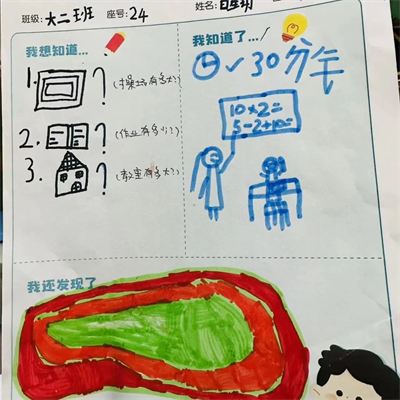 班级: 大二 班 座号: 24 姓名:
我想知道...
1 ? (操场有多大?)
2. ? (作业有多少?)
3. ? (教室有多大?)
我知道了...
✓ 30分年
10×2=
5-2+10=
我还发现了